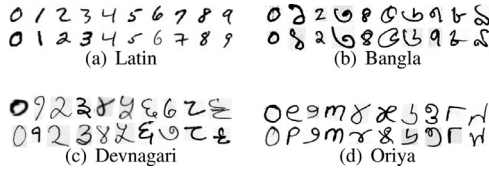 0 1 2 3 4 5 6 7 8 9
0 1 2 3 4 5 6 7 8 9
(a) Latin
০ ১ ২ ৩ ৪ ৫ ৬ ৭ ৮ ৯
০ ১ ২ ৩ ৪ ৫ ৬ ৭ ৮ ৯
(b) Bangla
० १ २ ३ ४ ५ ६ ७ ८ ९
० १ २ ३ ४ ५ ६ ७ ८ ९
(c) Devnagari
୦ ୧ ୨ ୩ ୪ ୫ ୬ ୭ ୮ ୯
୦ ୧ ୨ ୩ ୪ ୫ ୬ ୭ ୮ ୯
(d) Oriya